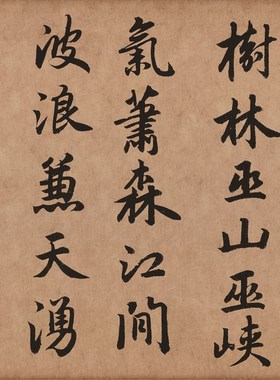 樹林巫山巫峽
氣蕭森江間
波浪蒹天湧